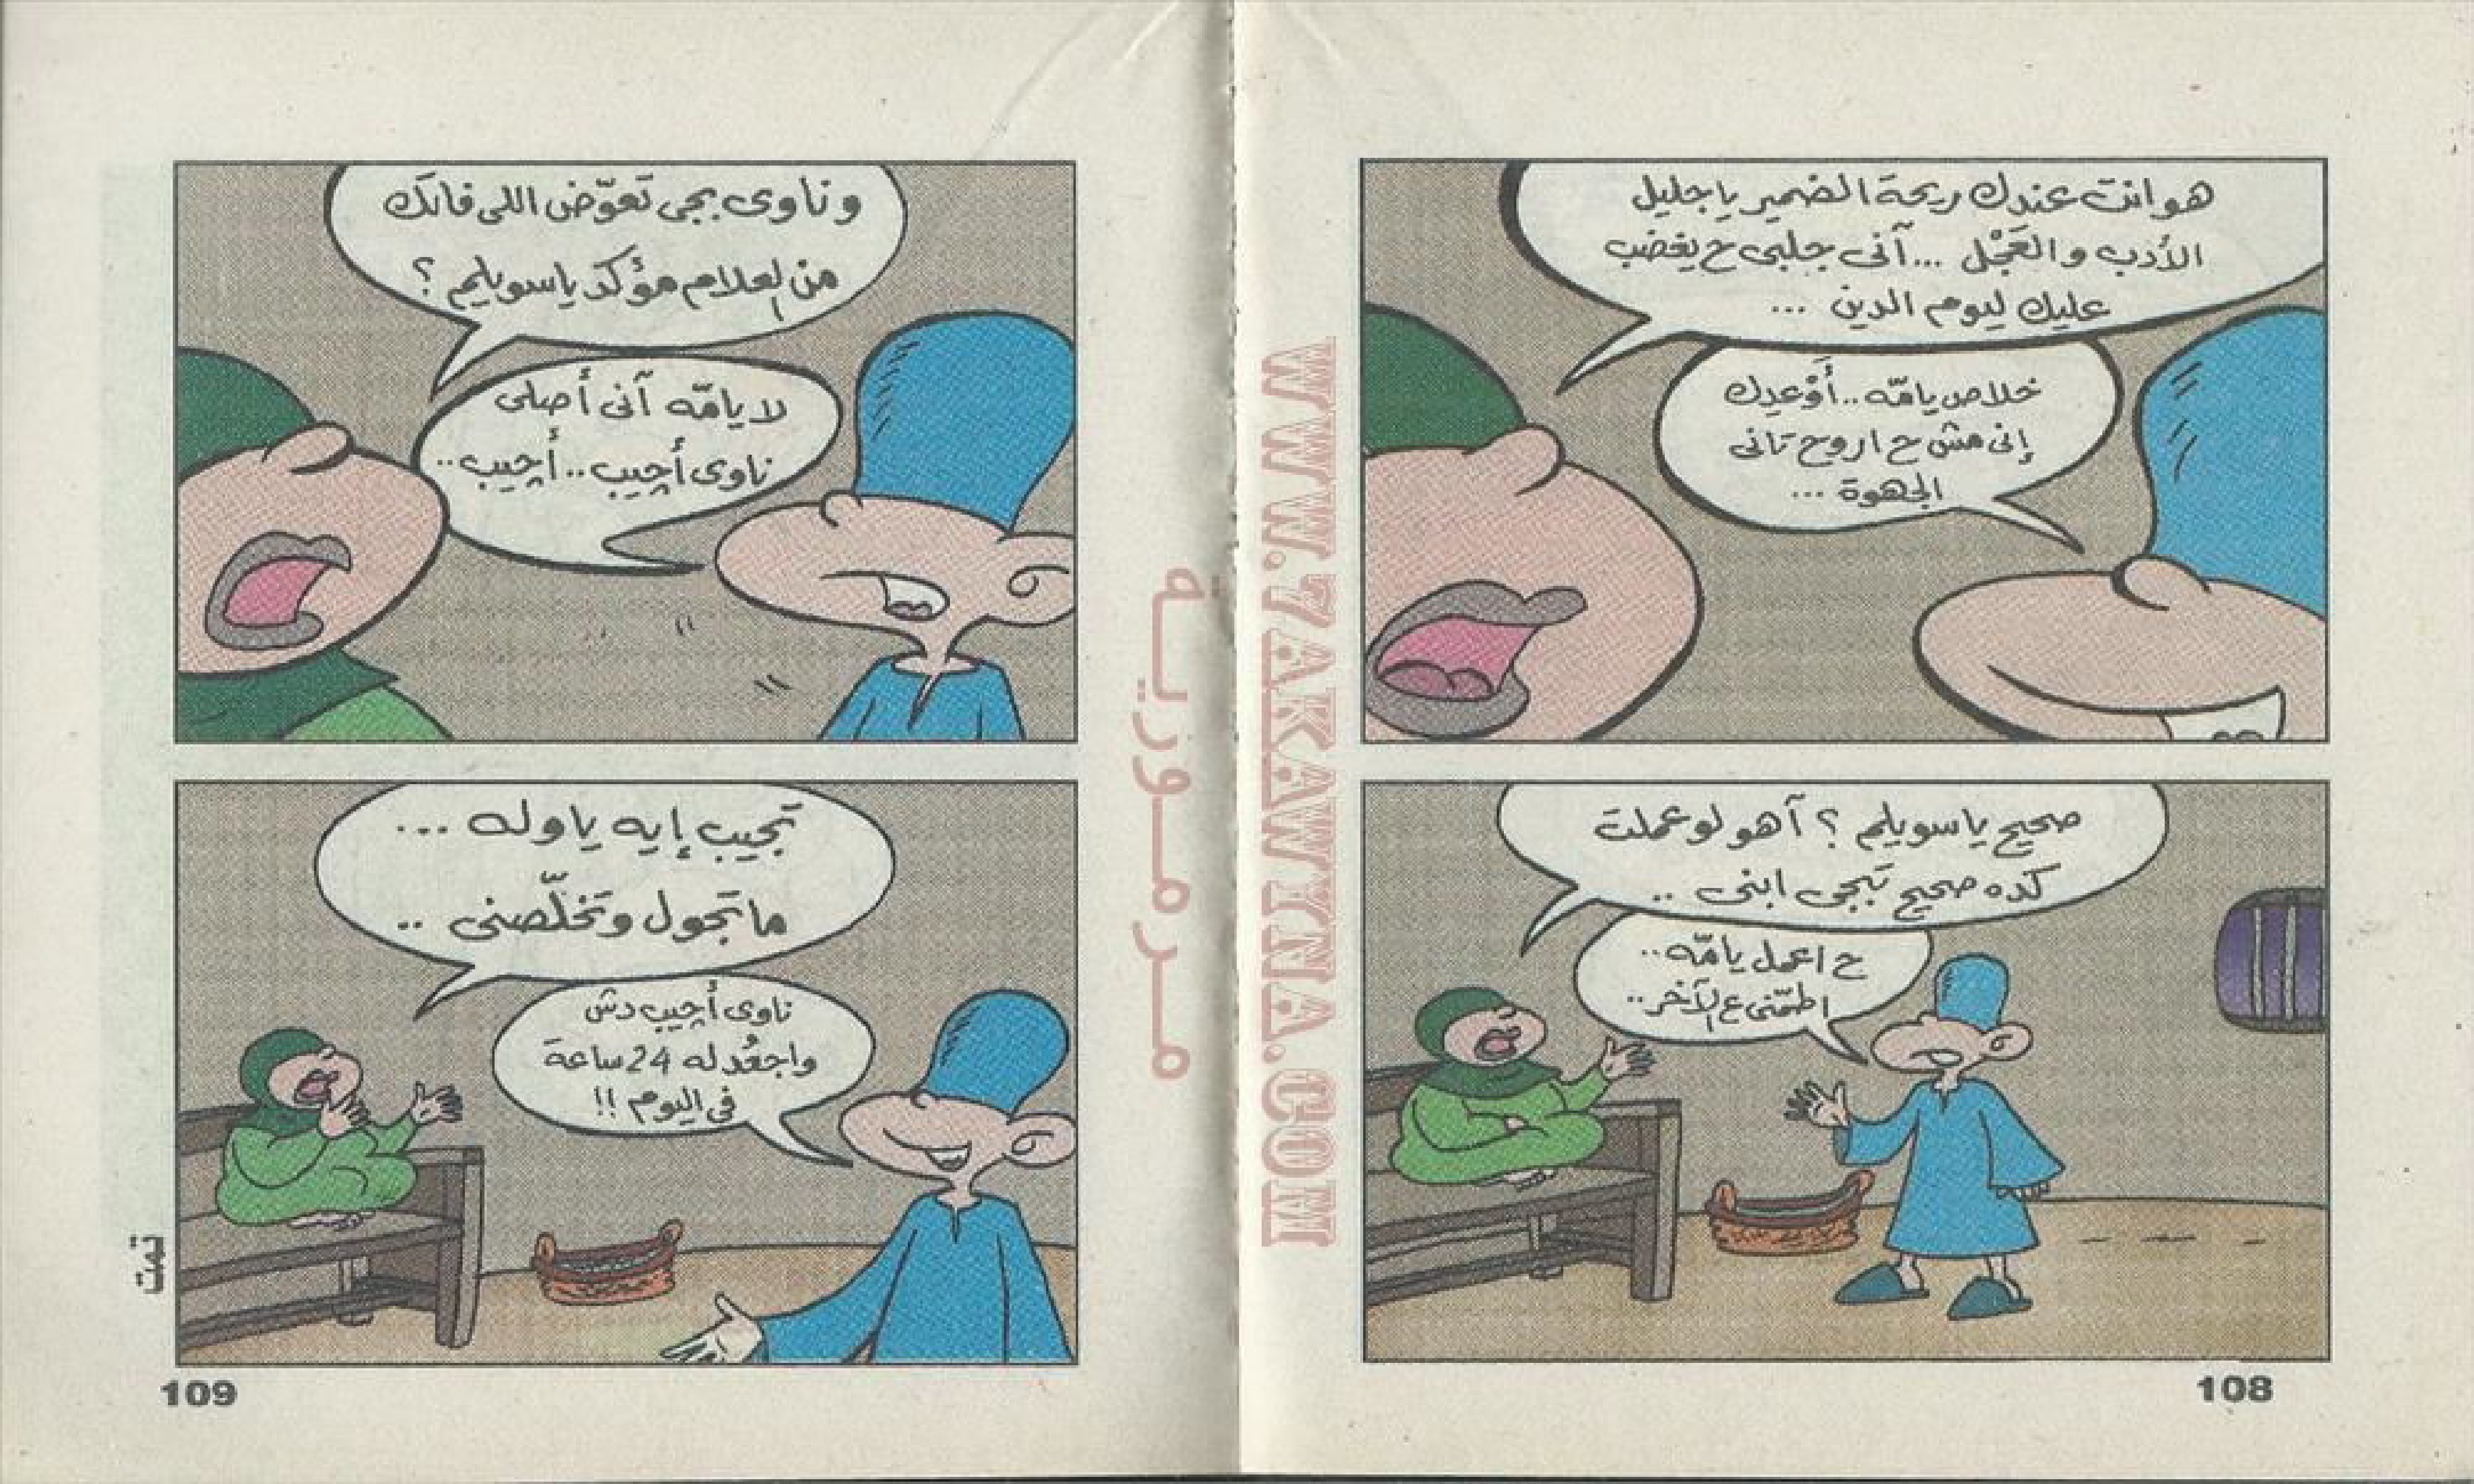 هو انت عندك ريحة الضمير يا جليل
الأدب والعَجْل ... آنى جلبى ح يغضب
عليك ليوم الدين ...
خلاص يامّه .. أَوْعدِك
إنى مش ح اروح تانى
الجهوة ...
صحيح يا سويلم ؟ آهو لو عملت
كده صحيح تَبجى ابنى ..
ح اعمل يامّه ..
اطمّنى ع الآخر ..
108
وناوى بجى تعَوّض اللى فاتَك
من العلام مؤكَّد يا سويلم ؟
لا يامّه آنى أصلى
ناوى أجيب .. أجيب ..
تجيب إيه ياوله ...
ما تجول وتخلّصنى ..
ناوى أجيب دش
واجعُد له 24 ساعة
فى اليوم !!
تمت
109
WWW.7AKAWYNA.COM
مرمورية